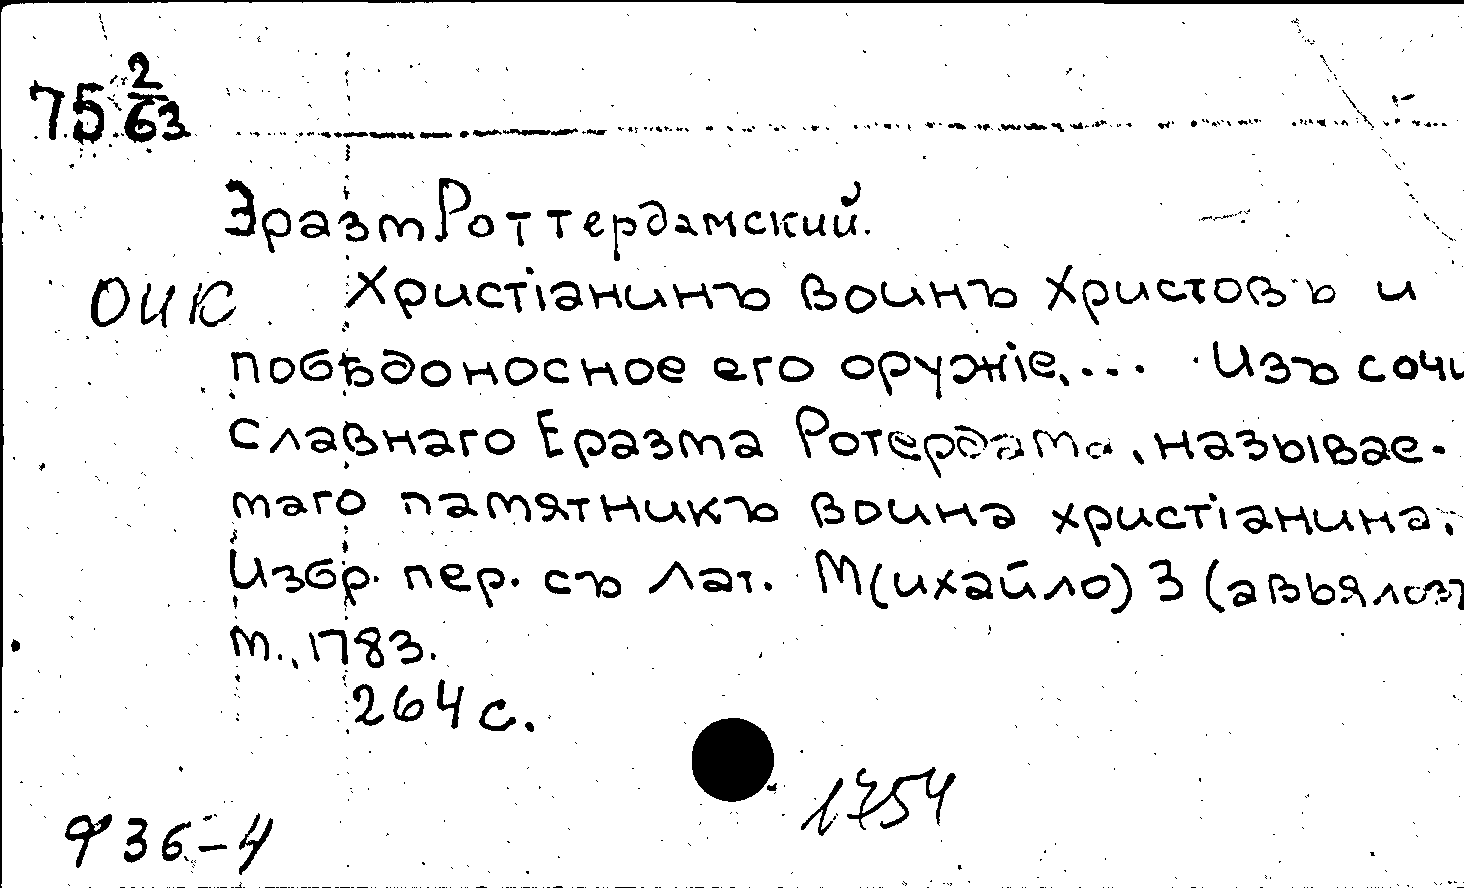 75 2/63
Эразм Роттердамский.
ОИК Христіанинъ воинъ Христовъ и
побѣдоносное его оружіе,... Изъ сочи
славнаго Еразма Ротердама, называе-
маго памятникъ воина христіанина.
Избр. пер. съ лат. М(ихайло) З(авьялов
М., 1783.
264 с.
1754
Ф 36-4